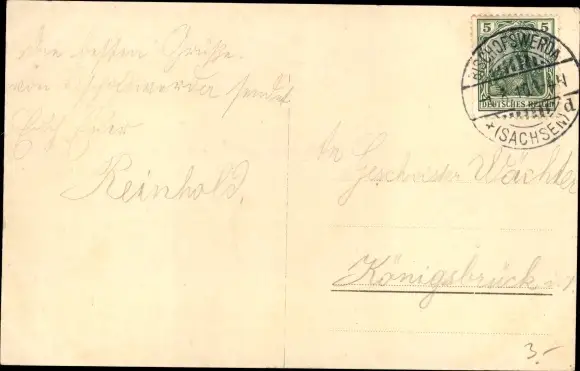 Die besten Grüße
von Bischofswerda sendet
Euch Euer
Reinhold.
5 5
DEUTSCHES REICH
BISCHOFSWERDA
+(SACHSEN) d
Geschwister Wächter
Königsbrück
3.-